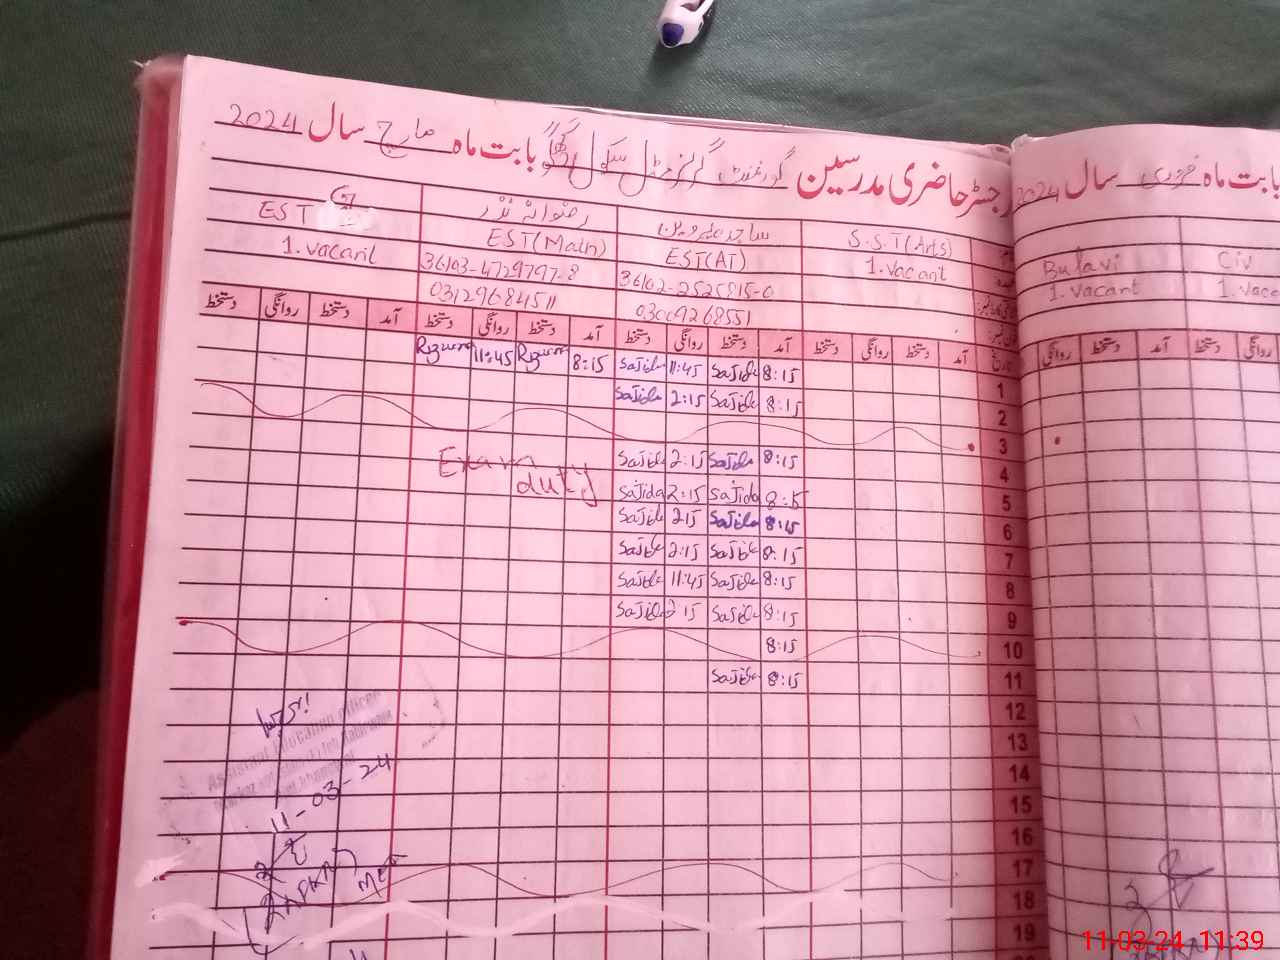 رجسٹر حاضری مدرسین گورنمنٹ گرلز مڈل سکول بابت ماہ مارچ سال 2024
S.S.T (Arts) ساجدہ پروین رضوانہ نذر EST
1. Vacant EST (AT) EST (Math) 1. Vacant
36102-2525815-0 36103-4729797-8
03009268551 03129684511
آمد دستخط روانگی دستخط آمد دستخط روانگی دستخط آمد دستخط روانگی دستخط آمد دستخط روانگی دستخط
1 8:15 Sajida 11:45 Sajida 8:15 Rizwan 11:45 Rizwan
2 8:15 Sajida 2:15 Sajida
3
4 8:15 Sajida 2:15 Sajida Exam
5 8:15 Sajida 2:15 Sajida duty
6 8:15 Sajida 215 Sajida
7 8:15 Sajida 2:15 Sajida
8 8:15 Sajida 11:45 Sajida
9 8:15 Sajida 2 15 Sajida
10 8:15
11 8:15 Sajida
12
13
14
15
16
17
18
19
Assistant Education Officer
11-03-24
بابت ماہ فروری سال 2024
Civ
1. Vacant
روانگی دستخط آمد دستخط روانگی
11-03-24 11:39